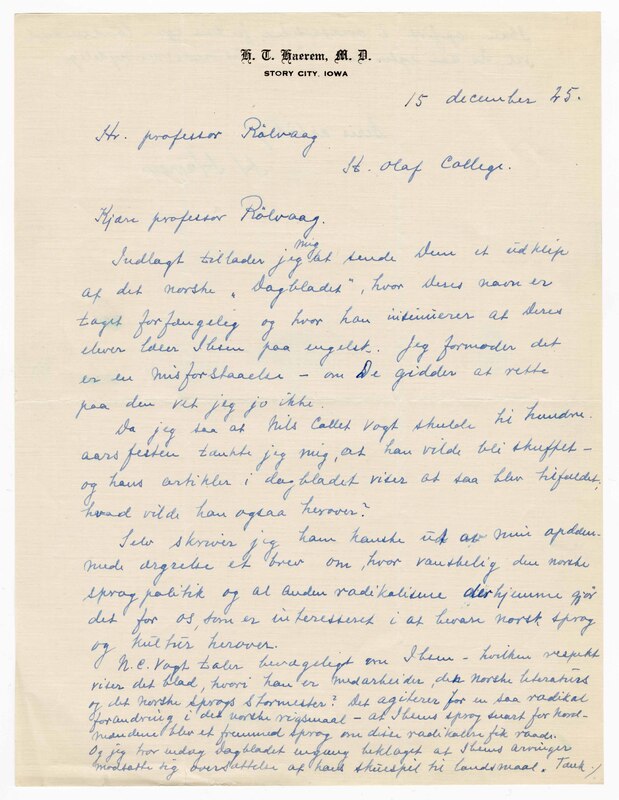 H. T. Haerem, M. D.
STORY CITY, IOWA
15 december 25.
Hr. professor Rölvaag
St. Olaf College.
Kjære professor Rölvaag.
Indlagt tillader jeg mig at sende Dem et udklip
af det norske „Dagbladet", hvor Deres navn er
taget forfængelig og hvor han insinuerer at Deres
elever læser Ibsen paa engelsk. Jeg formoder det
er en misforstaaelse – om De gidder at rette
paa den vet jeg jo ikke.
Da jeg saa at Nils Collet Vogt skulde til hundre-
aarsfesten tænkte jeg mig, at han vilde bli skuffet –
og hans artikler i dagbladet viser at saa blev tilfældet,
hvad vilde han ogsaa herover?
Selv skriver jeg ham kanske ut av min opdæm-
mede ærgrelse et brev om, hvor vanskelig den norske
sprogpolitik og al anden radikalisme derhjemme gjør
det for os, som er interesseret i at bevare norsk sprog
og kultur herover.
N.C. Vogt taler bevægeligt om Ibsen – hvilken respekt
viser det blad, hvori han er medarbeider, den norske literaturs
og det norske sprogs stormester? Det agiterer for en saa radikal
forandring i det norske rigsmaal – at Ibsens sprog snart for nord-
mændene blev et fremmed sprog om disse radikalere fik raade.
Og jeg tror endog Dagbladet engang beklaget at Ibsens arvinger
modsatte sig oversættelse af hans skuespil til landsmaal. Tænk :/